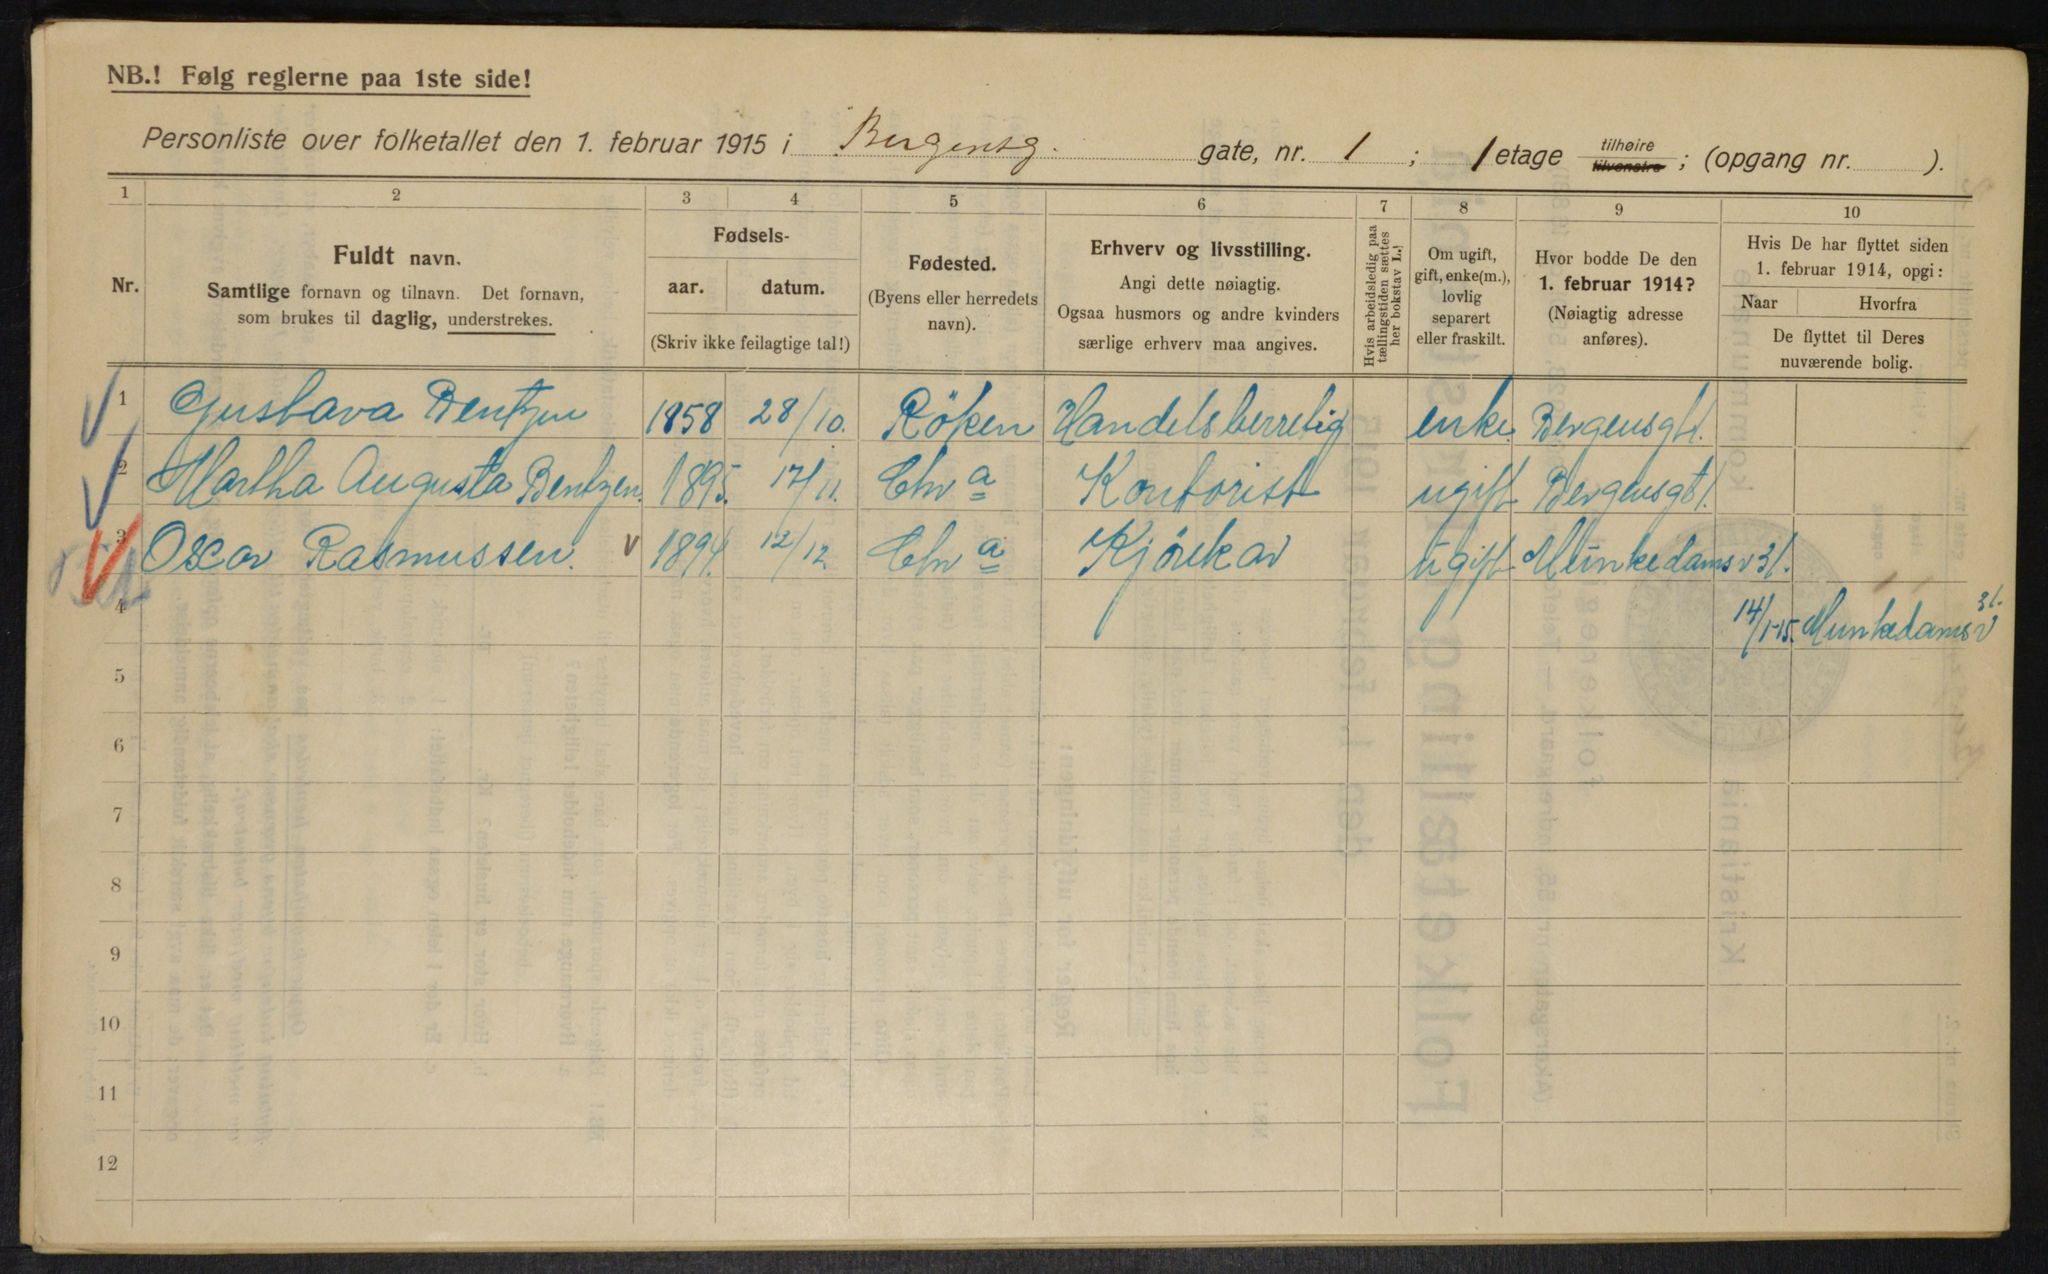 NB.! Følg reglerne paa 1ste side!
Personliste over folketallet den 1. februar 1915 i Bergensg. gate, nr. 1 ; 1 etage tilhøire tilvenstre ; (opgang nr. ).
1 2 3 4 5 6 7 8 9 10
Nr.
Fuldt navn.
Samtlige fornavn og tilnavn. Det fornavn,
som brukes til daglig, understrekes.
Fødsels-
aar. datum.
(Skriv ikke feilagtige tal!)
Fødested.
(Byens eller herredets
navn).
Erhverv og livsstilling.
Angi dette nøiagtig.
Ogsaa husmors og andre kvinders
særlige erhverv maa angives.
Hvis arbeidsledig paa
tællingstiden sættes
her bokstav L.!
Om ugift,
gift, enke(m.),
lovlig
separert
eller fraskilt.
Hvor bodde De den
1. februar 1914?
(Nøiagtig adresse
anføres).
Hvis De har flyttet siden
1. februar 1914, opgi:
Naar Hvorfra
De flyttet til Deres
nuværende bolig.
1 Gustava Bentzen 1858 28/10. Röken Handelsberretig enke Bergensgt 1.
2 Martha Augusta Bentzen. 1895. 17/11. Chr a Kontorist ugift Bergensgt 1.
3 Oscar Rasmussen. 1894. 12/12 Chr a Kjörekar ugift Munkedamsv 31.
4 14/1-15. Munkedamsv 31.
5
6
7
8
9
10
11
12